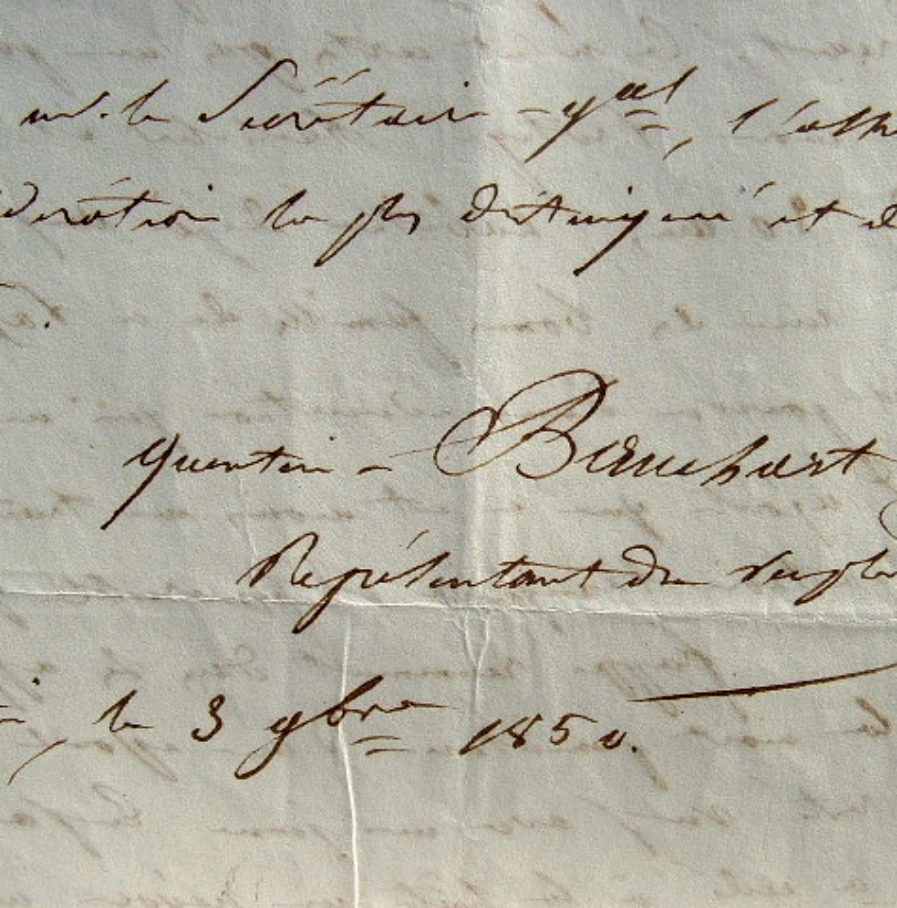 M. le Secrétaire-gal, l'assu
dération la plus distinguée et d
Quentin-Bauchart
Représentant du peuple
, le 3 9bre 1850.